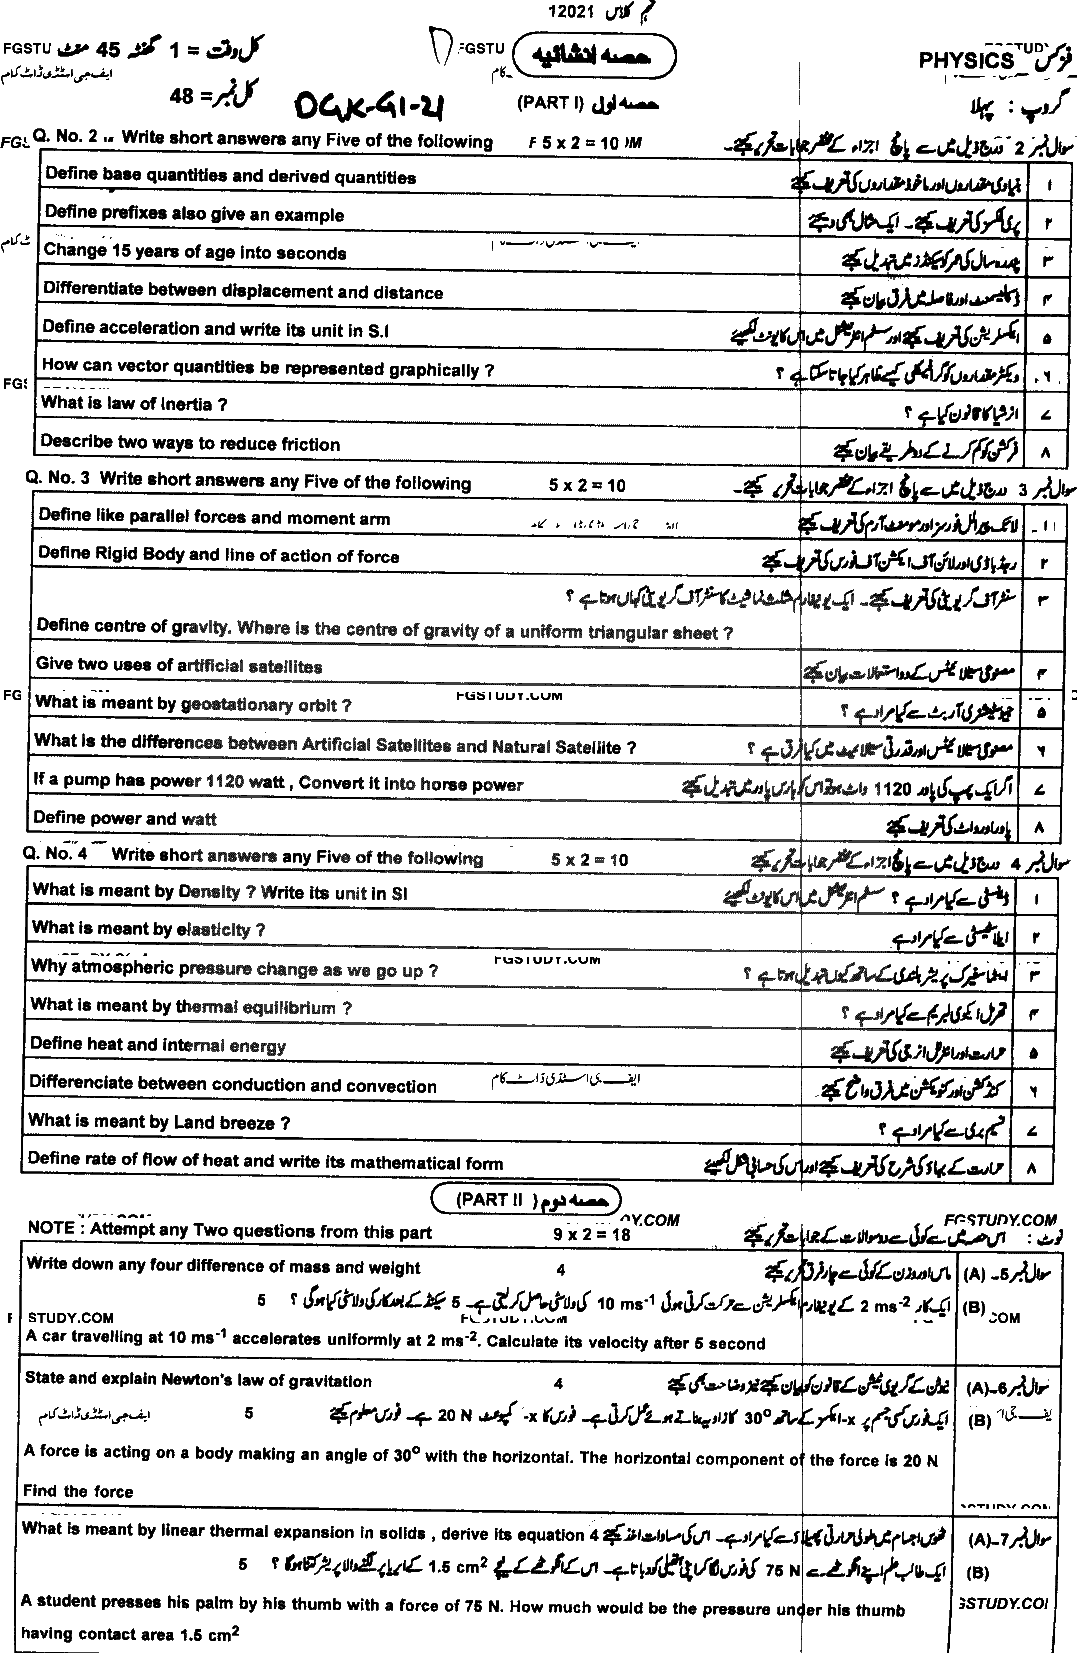 نہم کلاس 12021
PHYSICS فزکس
حصہ انشائیہ
FGSTU
کل وقت = 1 گھنٹہ 45 منٹ
FGSTU
ایف جی اسٹڈی ڈاٹ کام
گروپ : پہلا
حصہ اول (PART I)
DGK-G1-21
کل نمبر = 48
Q. No. 2 Write short answers any Five of the following 5 x 2 = 10 سوال نمبر 2 درج ذیل میں سے پانچ اجزاء کے مختصر جوابات تحریر کیجئے۔
Define base quantities and derived quantities بنیادی مقداروں اور ماخوذ مقداروں کی تعریف کیجئے ۱
Define prefixes also give an example پری فکسز کی تعریف کیجئے۔ ایک مثال بھی دیجئے ۲
Change 15 years of age into seconds پندرہ سال کی عمر کو سیکنڈز میں تبدیل کیجئے ۳
Differentiate between displacement and distance ڈسپلیسمنٹ اور فاصلہ میں فرق بیان کیجئے ۴
Define acceleration and write its unit in S.I ایکسلریشن کی تعریف کیجئے اور سسٹم انٹرنیشنل میں اس کا یونٹ لکھیئے ۵
How can vector quantities be represented graphically ? ویکٹر مقداروں کو گرافیکلی کیسے ظاہر کیا جا سکتا ہے ؟ ۶
What is law of Inertia ? انرشیا کا قانون کیا ہے ؟ ۷
Describe two ways to reduce friction فرکشن کو کم کرنے کے دو طریقے بیان کیجئے ۸
Q. No. 3 Write short answers any Five of the following 5 x 2 = 10 سوال نمبر 3 درج ذیل میں سے پانچ اجزاء کے مختصر جوابات تحریر کیجئے۔
Define like parallel forces and moment arm لائک پیرالل فورسز اور مومنٹ آرم کی تعریف کیجئے ۱
Define Rigid Body and line of action of force رجڈ باڈی اور لائن آف ایکشن آف فورس کی تعریف کیجئے ۲
سنٹر آف گریویٹی کی تعریف کیجئے۔ ایک یونیفارم مثلث نما شیٹ کا سنٹر آف گریویٹی کہاں ہوتا ہے ؟ ۳
Define centre of gravity. Where is the centre of gravity of a uniform triangular sheet ?
Give two uses of artificial satellites مصنوعی سیٹلائٹس کے دو استعمالات بیان کیجئے ۴
FG
FGSTUDY.COM
What is meant by geostationary orbit ? جیوسٹیشنری آربٹ سے کیا مراد ہے ؟ ۵
What is the differences between Artificial Satellites and Natural Satellite ? مصنوعی سیٹلائٹس اور قدرتی سیٹلائیٹ میں کیا فرق ہے ؟ ۶
If a pump has power 1120 watt , Convert it into horse power اگر ایک پمپ کی پاور 1120 واٹ ہو تو اس کو ہارس پاور میں تبدیل کیجئے ۷
Define power and watt پاور اور واٹ کی تعریف کیجئے ۸
Q. No. 4 Write short answers any Five of the following 5 x 2 = 10 سوال نمبر 4 درج ذیل میں سے پانچ اجزاء کے مختصر جوابات تحریر کیجئے۔
What is meant by Density ? Write its unit in SI ڈینسٹی سے کیا مراد ہے ؟ سسٹم انٹرنیشنل میں اس کا یونٹ لکھیئے ۱
What is meant by elasticity ? ایلاسٹیسٹی سے کیا مراد ہے ۲
FGSTUDY.COM
Why atmospheric pressure change as we go up ? اٹماسفیرک پریشر بلندی کے ساتھ کیوں تبدیل ہوتا ہے ؟ ۳
What is meant by thermal equilibrium ? تھرمل ایکوی لبریم سے کیا مراد ہے ؟ ۴
Define heat and internal energy حرارت اور انٹرنل انرجی کی تعریف کیجئے ۵
Differenciate between conduction and convection ایف جی اسٹڈی ڈاٹ کام کنڈکشن اور کنویکشن میں فرق واضح کیجئے ۶
What is meant by Land breeze ? نسیم بری سے کیا مراد ہے ؟ ۷
Define rate of flow of heat and write its mathematical form حرارت کے بہاؤ کی شرح کی تعریف کیجئے اور اس کی حسابی شکل لکھیئے ۸
حصہ دوم (PART II)
DY.COM FGSTUDY.COM
NOTE : Attempt any Two questions from this part 9 x 2 = 18 نوٹ : اس حصہ میں سے کوئی سے دو سوالات کے جوابات تحریر کیجئے
Write down any four difference of mass and weight 4 ماس اور وزن کے کوئی سے چار فرق تحریر کیجئے سوال نمبر 5۔ (A)
ایک کار 2 ms-2 کے یونیفارم ایکسلریشن سے حرکت کرتی ہوئی 10 ms-1 کی ولاسٹی حاصل کر لیتی ہے۔ 5 سیکنڈ کے بعد کار کی ولاسٹی کیا ہو گی ؟ 5 (B)
STUDY.COM FGSTUDY.COM COM
A car travelling at 10 ms-1 accelerates uniformly at 2 ms-2. Calculate its velocity after 5 second
State and explain Newton's law of gravitation 4 نیوٹن کے گریوی ٹیشن کے قانون کو بیان کیجئے نیز وضاحت بھی کیجئے سوال نمبر 6۔ (A)
ایک فورس کسی جسم پر x-ایکسز کے ساتھ 30° کا زاویہ بناتے ہوئے عمل کرتی ہے۔ فورس کا x- کمپوننٹ 20 N ہے۔ فورس معلوم کیجئے 5 (B)
ایف جی اسٹڈی ڈاٹ کام
A force is acting on a body making an angle of 30° with the horizontal. The horizontal component of the force is 20 N
Find the force
What is meant by linear thermal expansion in solids , derive its equation 4 ٹھوس اجسام میں طولی حرارتی پھیلاؤ سے کیا مراد ہے۔ اس کی مساوات اخذ کیجئے سوال نمبر 7۔ (A)
ایک طالب علم اپنے انگوٹھے سے 75 N کی فورس لگا کر اپنی ہتھیلی کو دباتا ہے۔ اس کے انگوٹھے کے نیچے 1.5 cm2 کے ایریا پر لگنے والا پریشر کتنا ہو گا ؟ 5 (B)
A student presses his palm by his thumb with a force of 75 N. How much would be the pressure under his thumb
having contact area 1.5 cm2